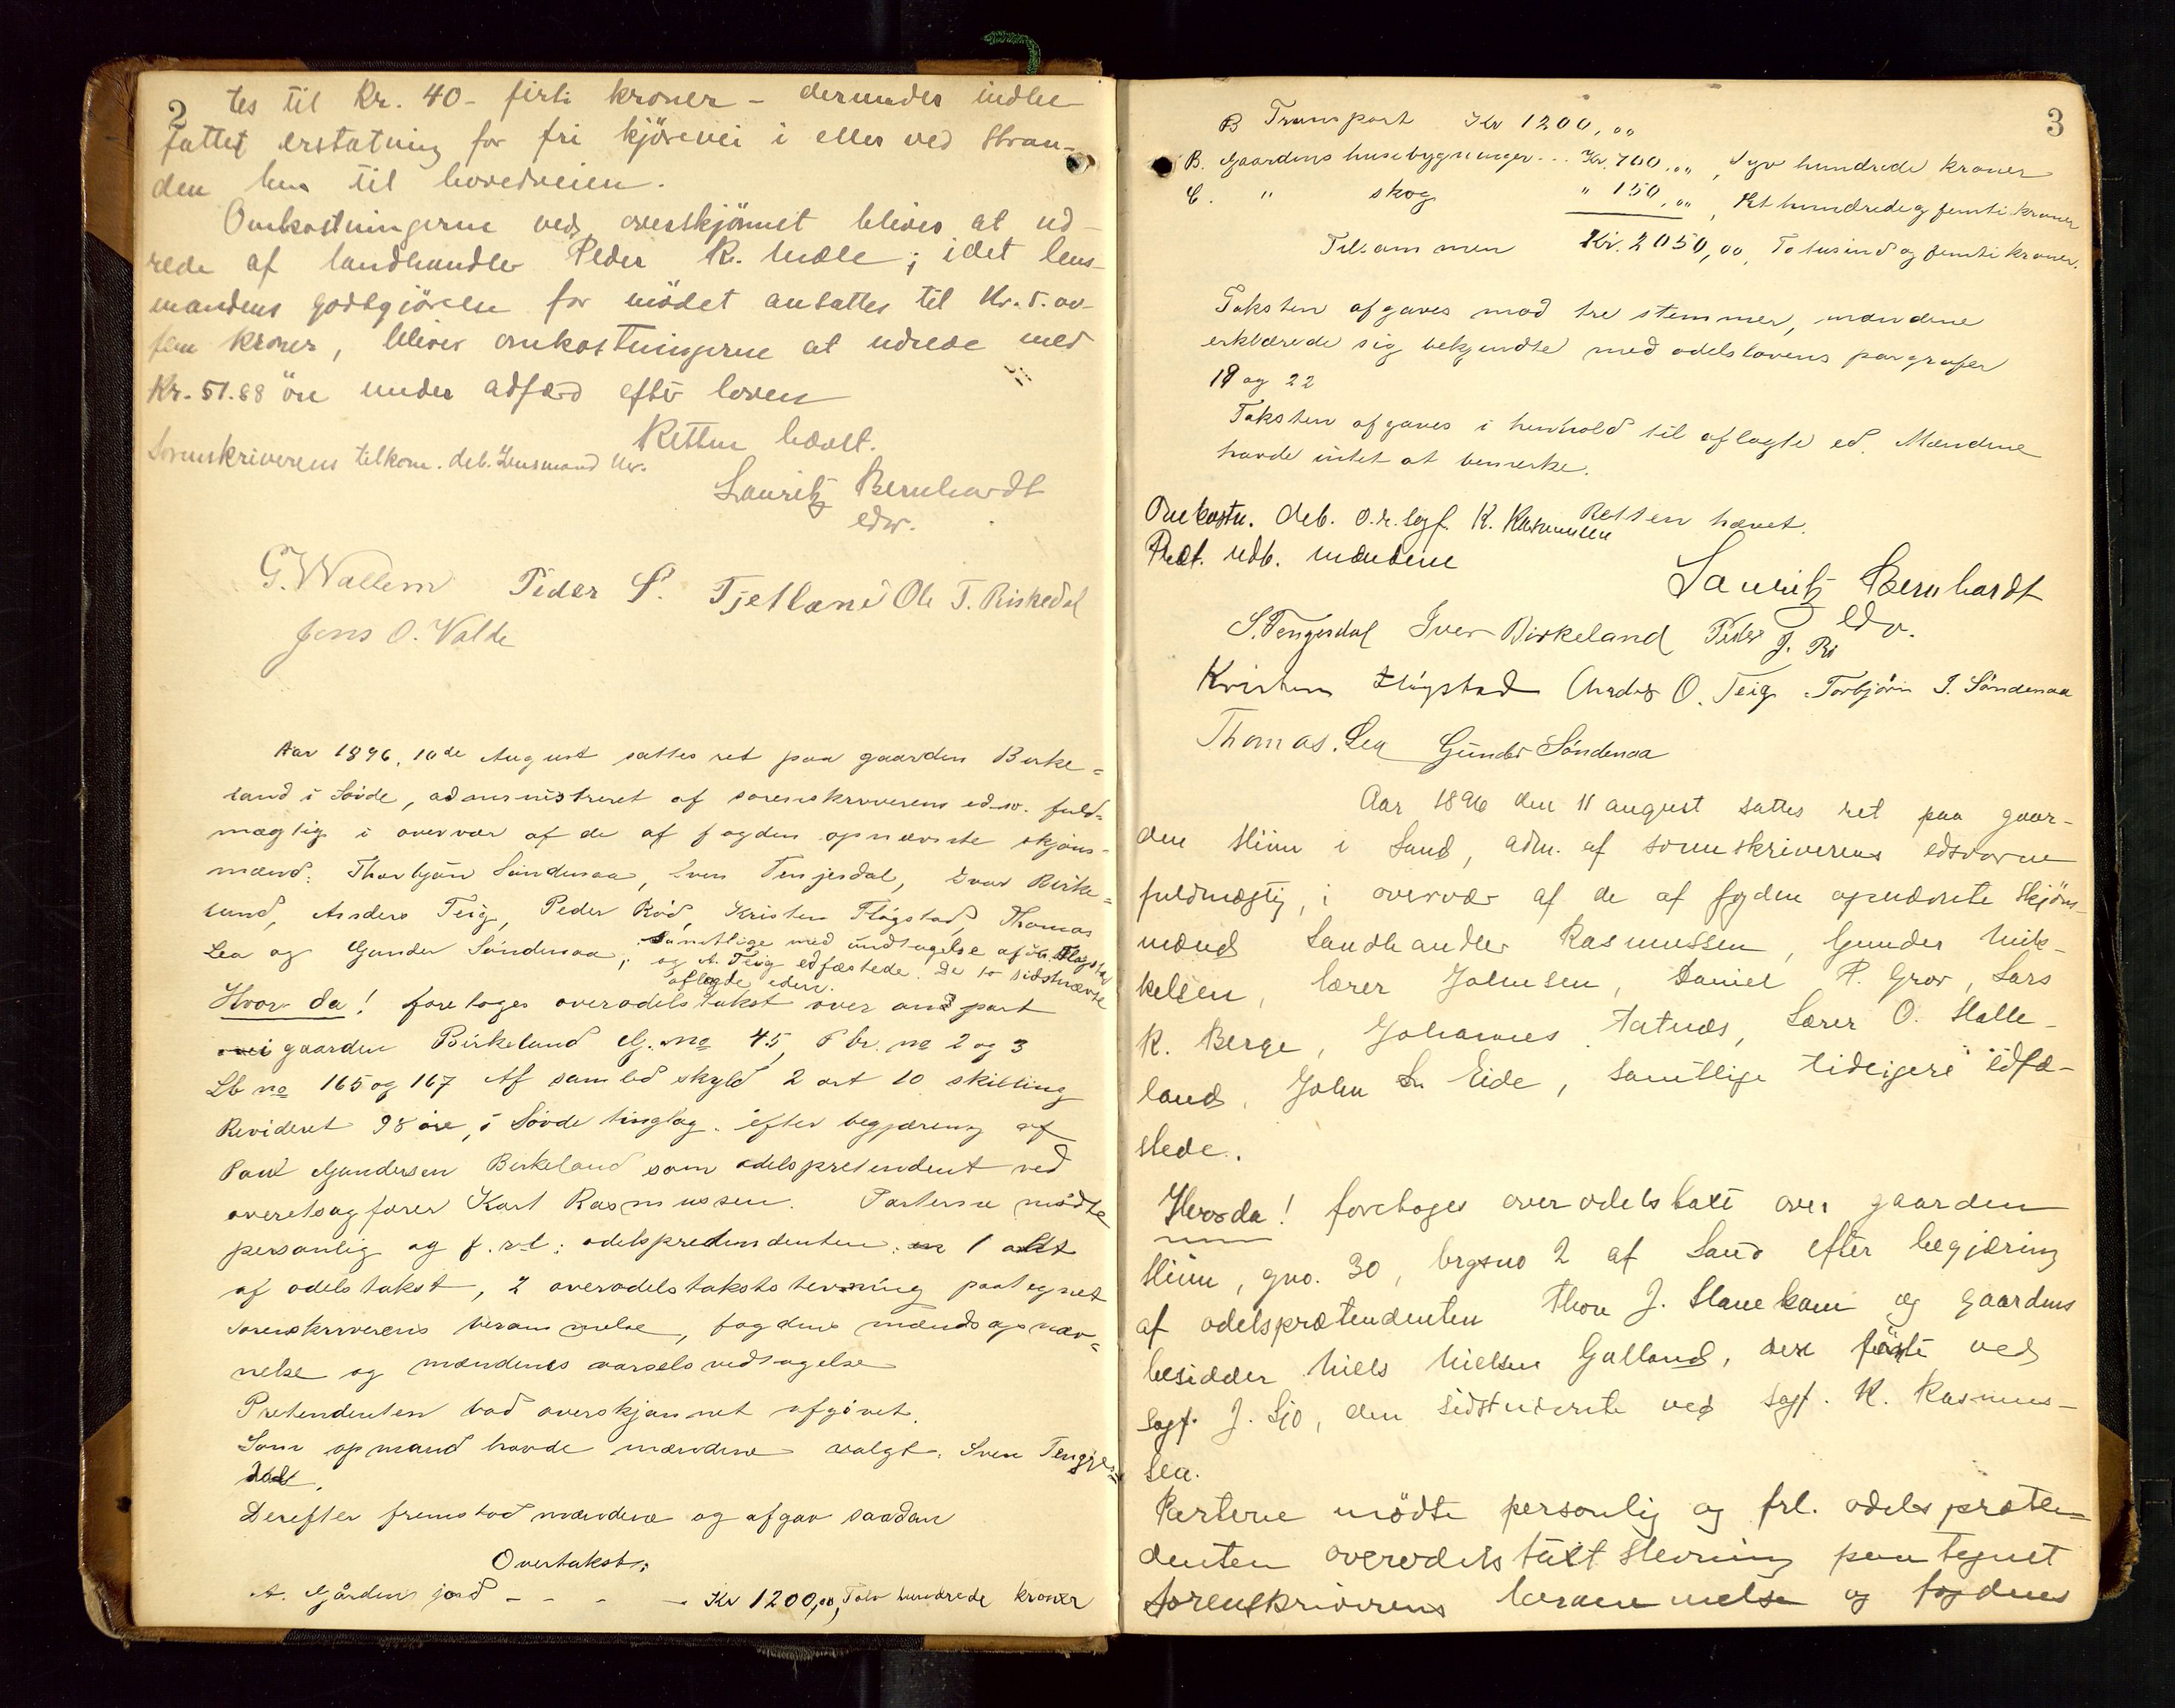 2
tes til Kr. 40 - firti kroner - derunder indbe-
fattet erstatning for fri kjörevei i eller ved Stran-
den hen til hovedveien.
Omkostningerne ved overskjönnet blives at ud-
rede af landhandler Peder R. Mæle; idet lens-
mandens godtgjörelse for mödet ansattes til Kr. 5.00
fem kroner, bliver omkostningerne at udrede med
Kr. 51.88 öre under adfærd efter loven
Retten hævet.
Sorenskriverens tilkom. deb. Lensmand
Lauritz Bernhardt
edsv.
G. Wallem Peder S. Tjetland Ole T. Riskedal
Jens O. Valde
Aar 1896, 10de August sattes ret paa gaarden Birke=
land i Søvde, administreret af sorenskriverens edsv. fuld=
mægtig i overvær af de af fogden opnævnte skjøns-
mænd: Thorbjøn Søndenaa, Sven Tengesdal, Ivar Birke=
land, Anders Teig, Peder Rød, Kristen Fløgstad, Thomas
Lea og Gunder Søndenaa; samtlige med undtagelse af Kr. Fløgstad
og A. Teig edfæstede. De to sidstnævnte
aflagde eden.
Hvor da! foretoges overodelstakst over en part
i gaarden Birkeland G. no 45, br. no 2 og 3
Lb no 165 og 167 Af samlet skyld 2 ort 10 skilling
Revideret 98 øre, i Søvde tinglag. efter begjæring af
Paul Gundersen Birkeland som odelspretendent ved
overetsagfører Karl Rasmussen. Parterne mødte
personlig og f.r.l: odelspretendenten: 1 akt
af odelstakst, 2 overodelstakststevning paategnet
sorenskriverens berammelse, fogdens mændsopnæv=
nelse og mændenes varsels vedtagelse
Pretendenten bad overskjønnet afgivet.
Som opmand havde mændene valgt. Sven Tengjes=
dal.
Derefter fremstod mændene og afgav saadan
Overtakst:
A. Gårdens jord - - - - Kr 1200,00, Tolv hundrede kroner
3
B Transport Kr 1200,00
B. Gaardens husebygninger... Kr. 700,00, Syv hundrede kroner
C. " skog " 150,00, Et hundrede og femti kroner
Tilsammen Kr. 2050,00, To tusind og femti kroner.
Taksten afgaves mod tre stemmer, mændene
erklærede sig bekjendte med odelslovens paragrafer
19 og 22
Taksten afgaves i henhold til aflagte ed. Mændene
havde intet at bemerke.
Retten hævet.
Omkostn. deb. o.r.sagf. K. Rasmussen
Præt. udb. mændene
Lauritz Bernhardt
edsv.
S. Tengesdal Iver Birkeland Peder J. Rö
Kristen Flögstad Anders O. Teig Torbjörn T. Söndenaa
Thomas. Lea Gunder Söndenaa
Aar 1896 den 11 august sattes ret paa gaar-
den Hiim i Sand, adm. af sorenskriverens edsvorne
fuldmægtig, i overvær af de af fogden opnævnte skjöns-
mænd Landhandler Rasmussen, Gunder Mik-
kelsen, lærer Johnsen, Daniel P. Grov, Lars
K. Berge, Johannes Tatnæs, Lærer O. Halle-
land, John L. Eide, samtlige tidligere edfæ-
stede.
Hvorda! foretoges overodelstaxt over gaarden
Hiim, gno. 30, brgsno 2 af Sand efter begjæring
af odelsprætendenten Thore J. Hanekam og gaardens
besidder Niels Nielsen Galland, den förste ved
sagf. J. Sjo, den sidstnævnte ved sagf. K. Rasmus-
sen.
Parterne mödte personlig og frl. odelspræten-
denten overodelstaxt stevning paategnet
sorenskriverens berammelse og fogdens